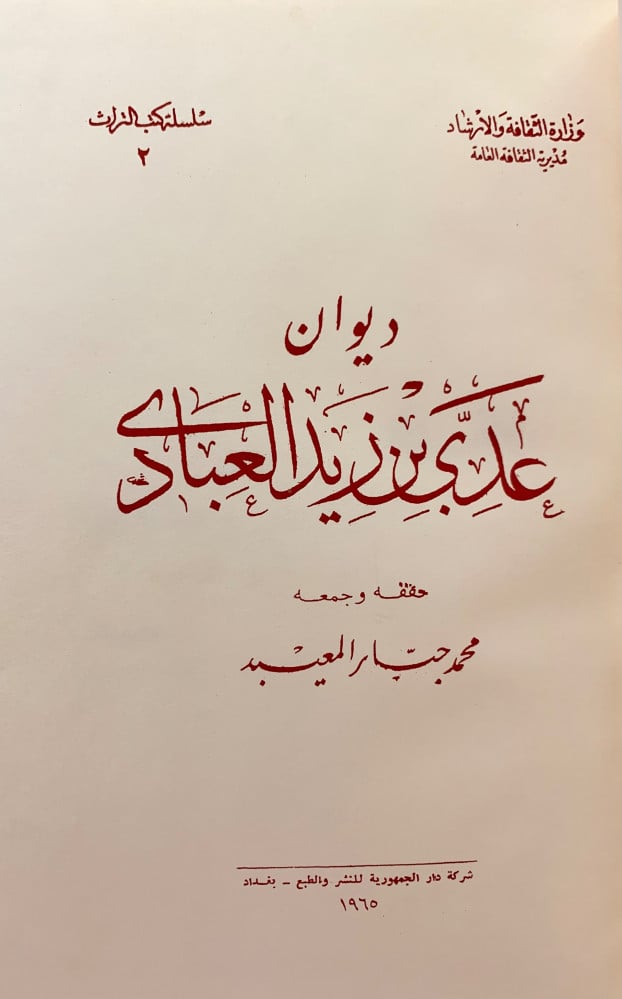 وزارة الثقافة والارشاد
مديرية الثقافة العامة
سلسلة كتب التراث
٢
ديوان
عَدِيّ بْنِ زَيْدِ العِبَادي
حققه وجمعه
محمد جبّار المعيبد
شركة دار الجمهورية للنشر والطبع – بغداد
١٩٦٥